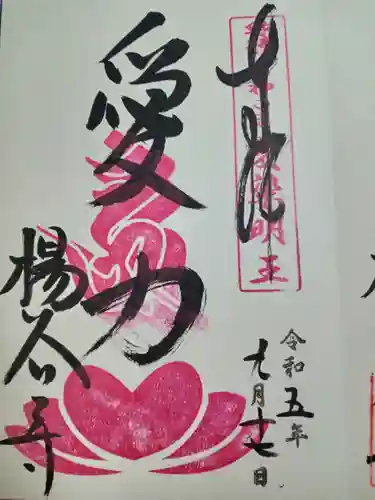 奉拝
明王
令和五年
九月十七日
愛力
楊谷寺